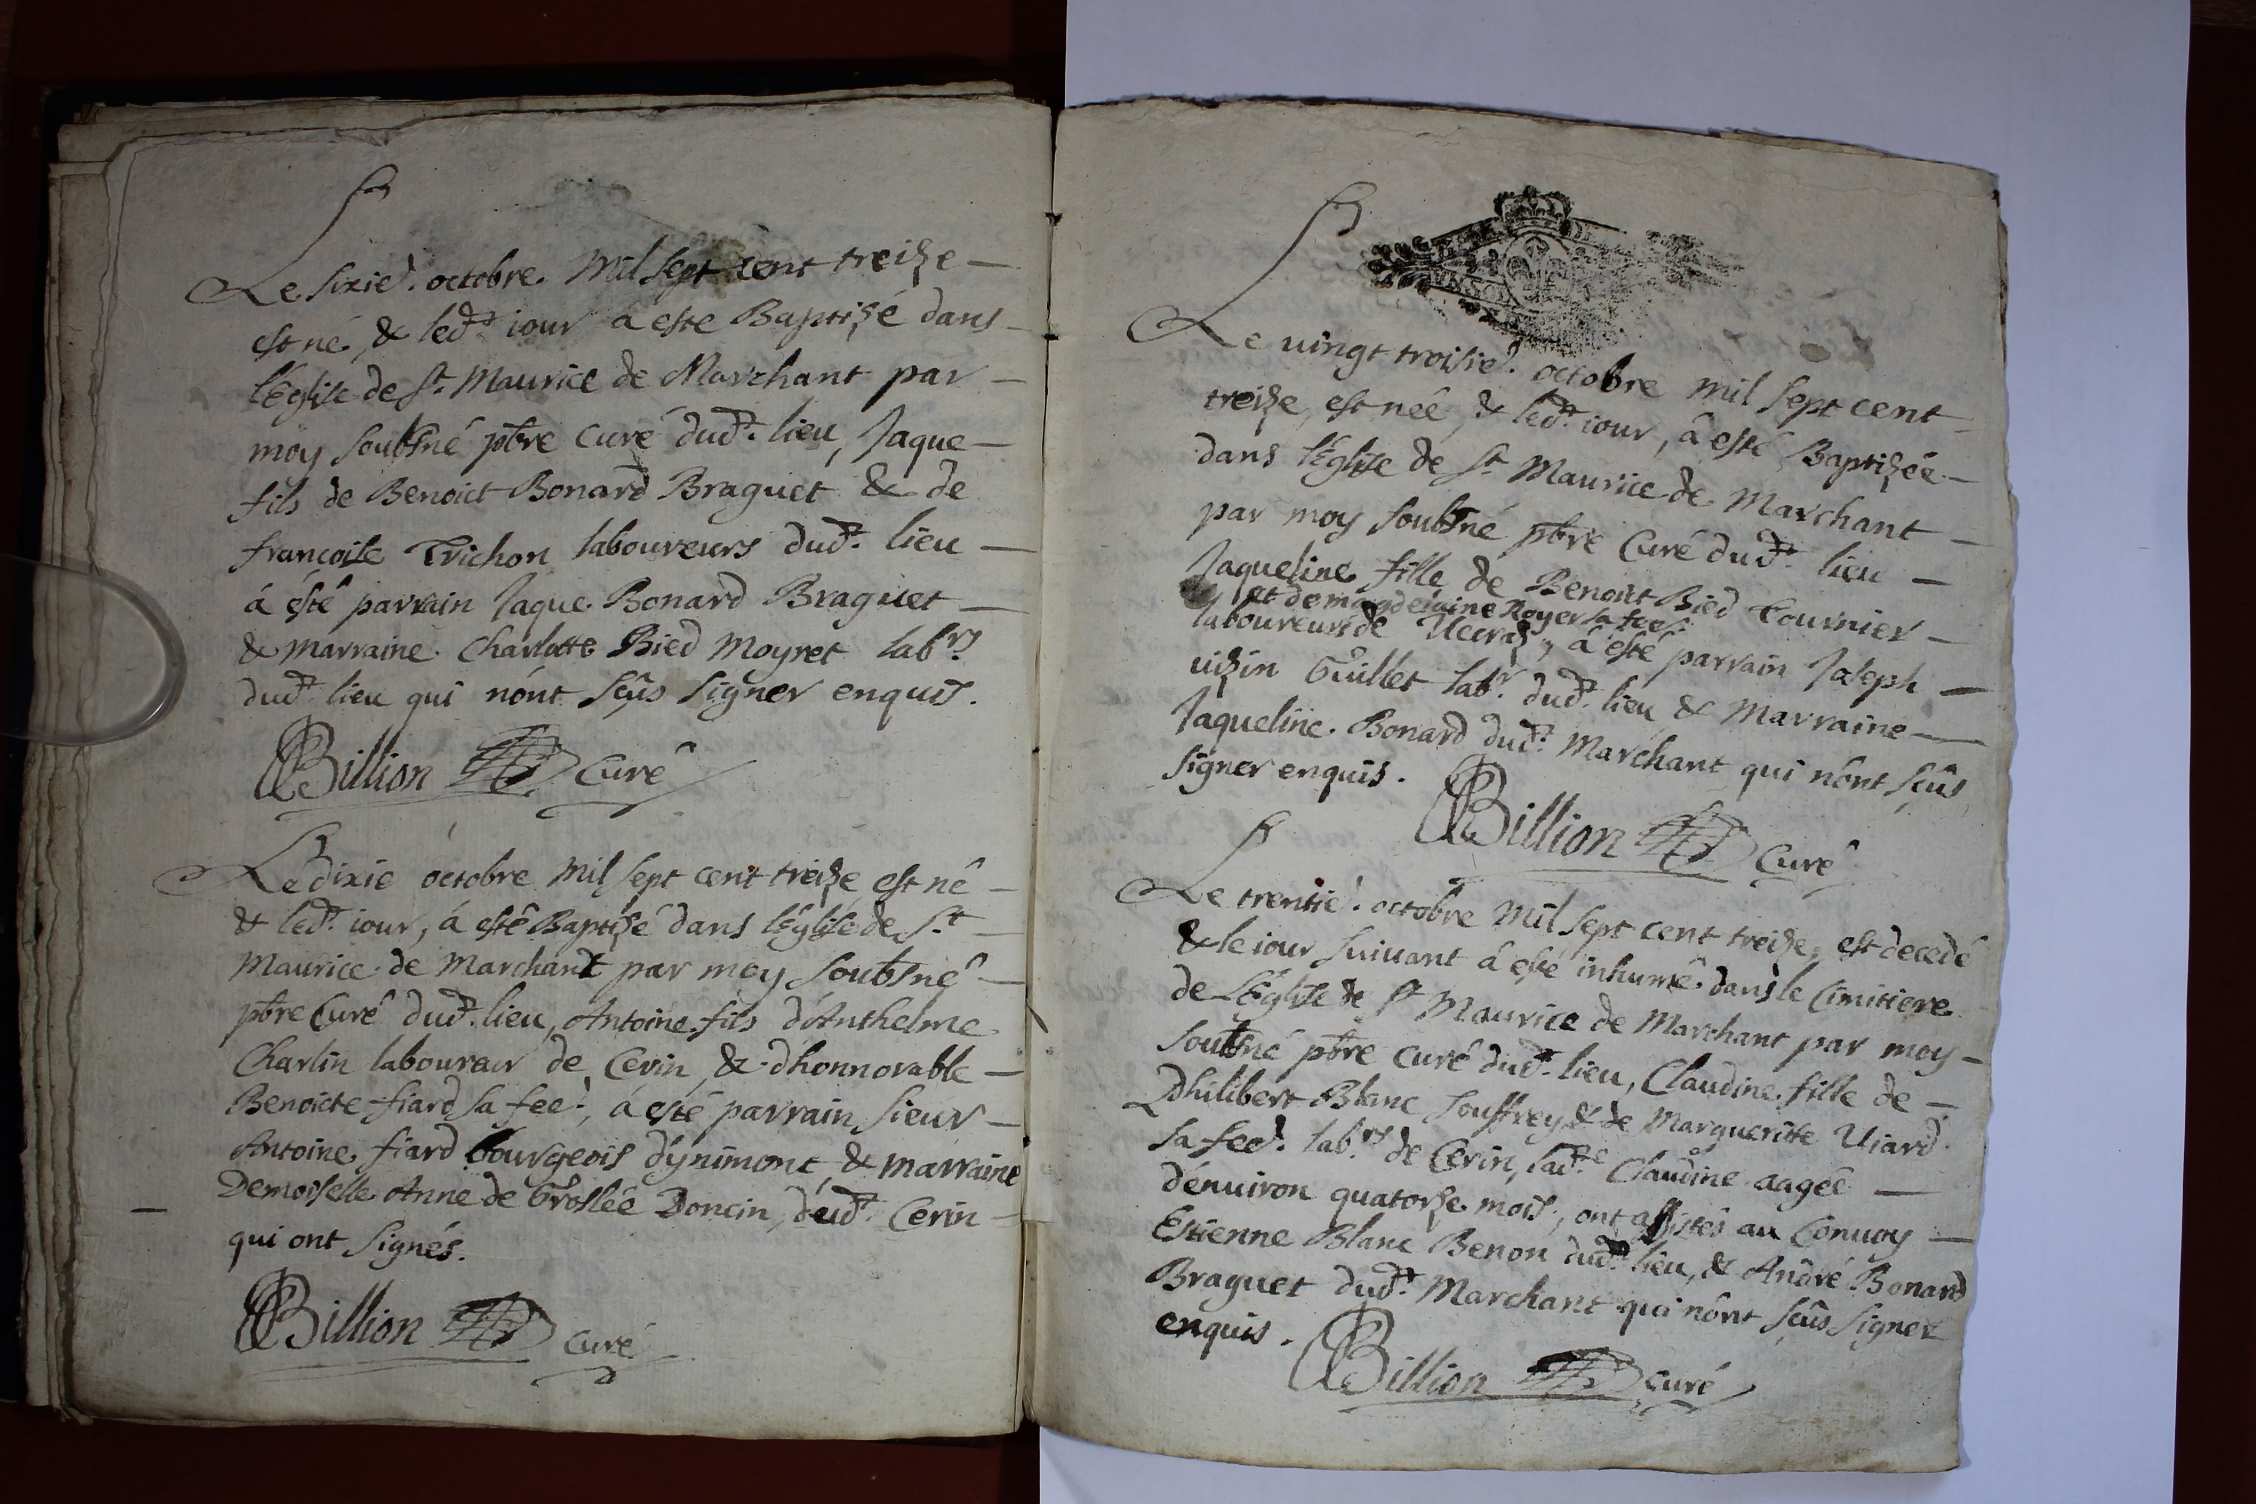 Le sixie. octobre Mil sept cent treize
est né, & led.t iour a este Baptizé dans
l'Eglise de S.t Maurice de Marchant par
moy soubsné pbre curé dud.t lieu, Jaque
fils de Benoict Bonard Braguet & de
francoise Trichon laboureurs dud.t lieu
á ésté parrain Jaque Bonard Braguet
& marraine Charlotte Bied Moyret lab.rs
dud.t lieu qui n'ont sçûs signer enquis.
Billion Curé
Le dixie octobre Mil sept cent treize, est né
& led.t iour, á esté Baptizé dans l'Eglise de S.t
Maurice de Marchant par moy soubsné
pbre Curé dud.t lieu, Antoine fils d'Anthelme
Charlin laboureur de Cerin, & dhonnorable
Benoicte fiard sa fee., á esté parrain sieur
Antoine fiard bourgeois d'ynimont, & marraine
Demoiselle Anne de Groslée Doncin, dud.t Cerin
qui ont signés.
Billion curé
Le uingt troisie. octobre Mil sept cent
treize, est née, & led.t iour, á esté Baptizée
dans l'Eglise de S.t Maurice de Marchant
par moy soubsné pbre Curé dud.t lieu
Jaqueline fille de Benoict Bied Tournier
et demandeiaine Royer sa fee.
laboureurs de á esté parrain Joseph
uizin Guillet lab.r dud.t lieu & Marraine
Jaqueline Bonard dud.t Marchant qui n'ont sçûs
signer enquis.
Billion Curé
Le trentie. octobre Mil sept cent treize, est decedé
& le iour suiuant á esté inhumé dans le Cimitiere
de L'Eglise de S.t Maurice de Marchant par moy
soubsné pbre curé dud.t lieu, Claudine fille de
Philibert Blanc souffrey & de Margueritte Uiard
sa fee. lab.rs de Cerin, lad.te Claudine aagée
d'enuiron quatorze mois, ont assistés au Conuoy
Estienne Blanc Benon dud.t lieu, & André Bonard
Braguet dud.t Marchant qui n'ont sçûs signer
enquis.
Billion curé